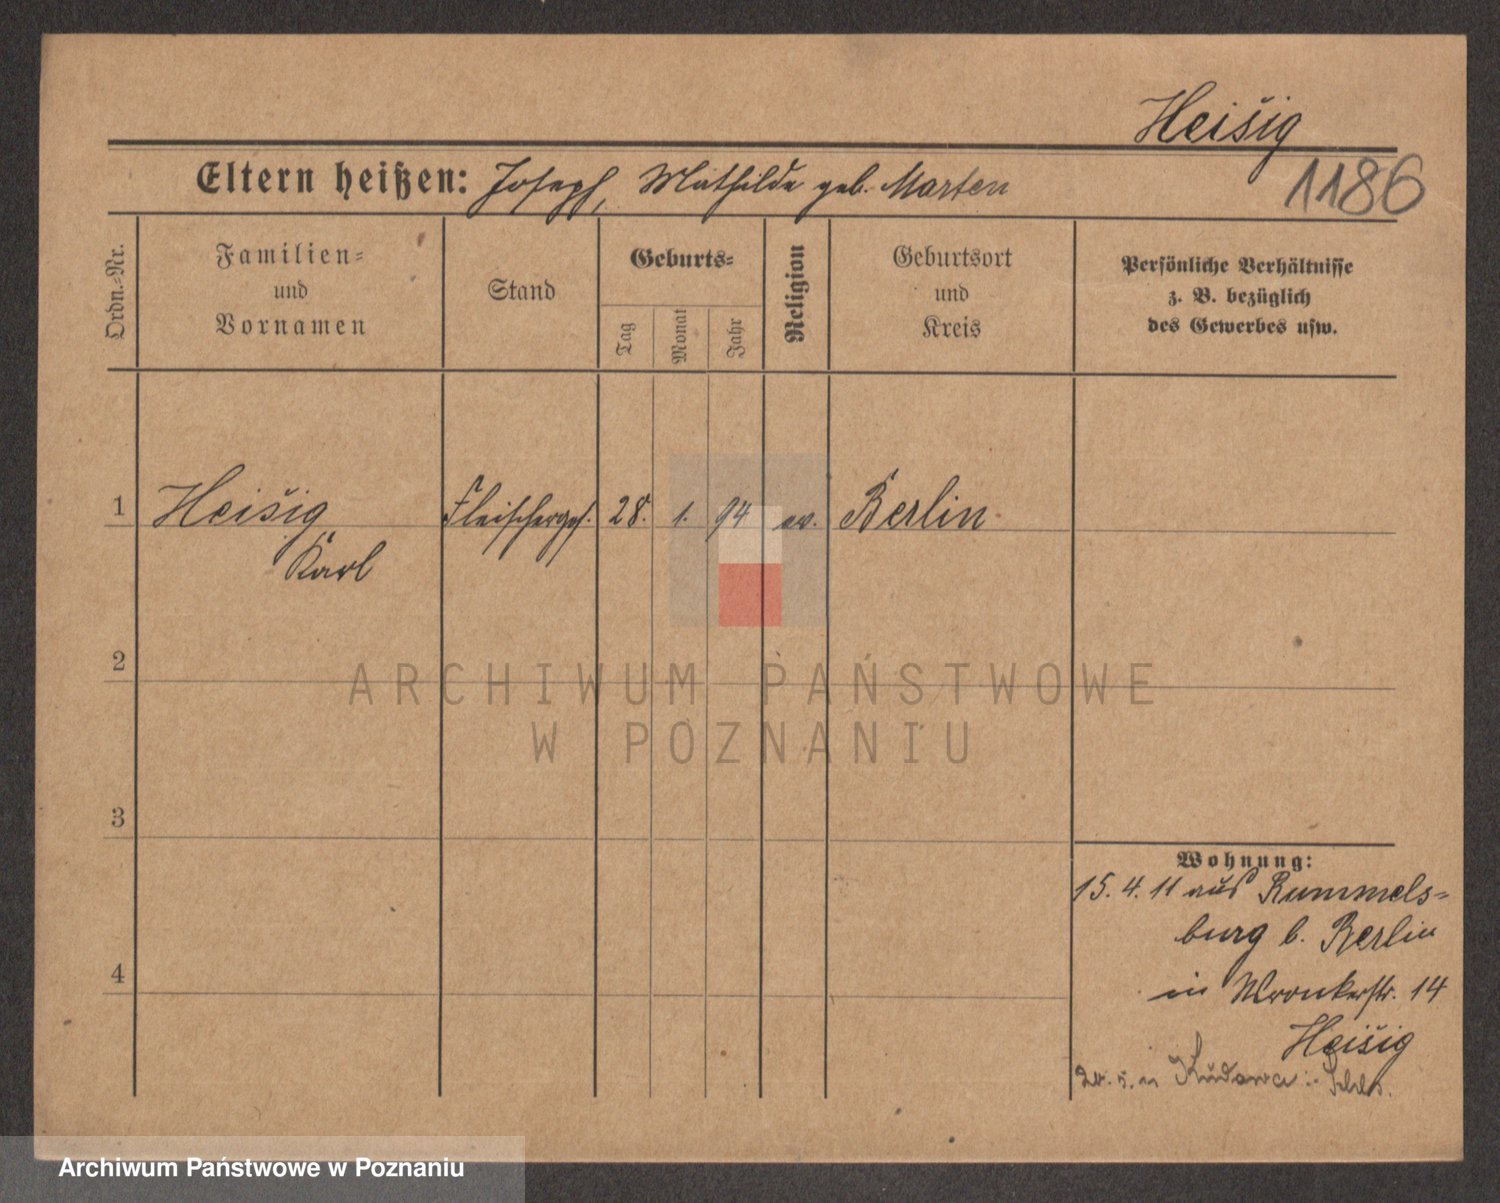 Heisig
1186
Eltern heißen: Joseph, Mathilde geb. Marten
Ordn.=Nr.
Familien=
und
Vornamen
Stand
Geburts=
Tag
Monat
Jahr
Religion
Geburtsort
und
Kreis
Persönliche Verhältnisse
z. B. bezüglich
des Gewerbes usw.
1 Heisig Fleischerges. 28. 1. 94 ev. Berlin
Karl
2
3
4
Wohnung:
15. 4. 11 aus Rummels=
burg b. Berlin
in Wronkerstr. 14
Heisig
Kudowa
ARCHIWUM PAŃSTWOWE
W POZNANIU
Archiwum Państwowe w Poznaniu